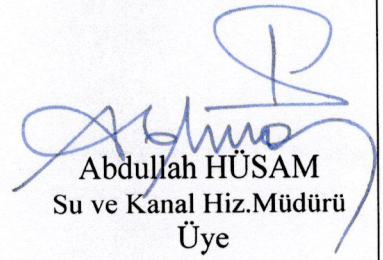 Abdullah HÜSAM
Su ve Kanal Hiz.Müdürü
Üye